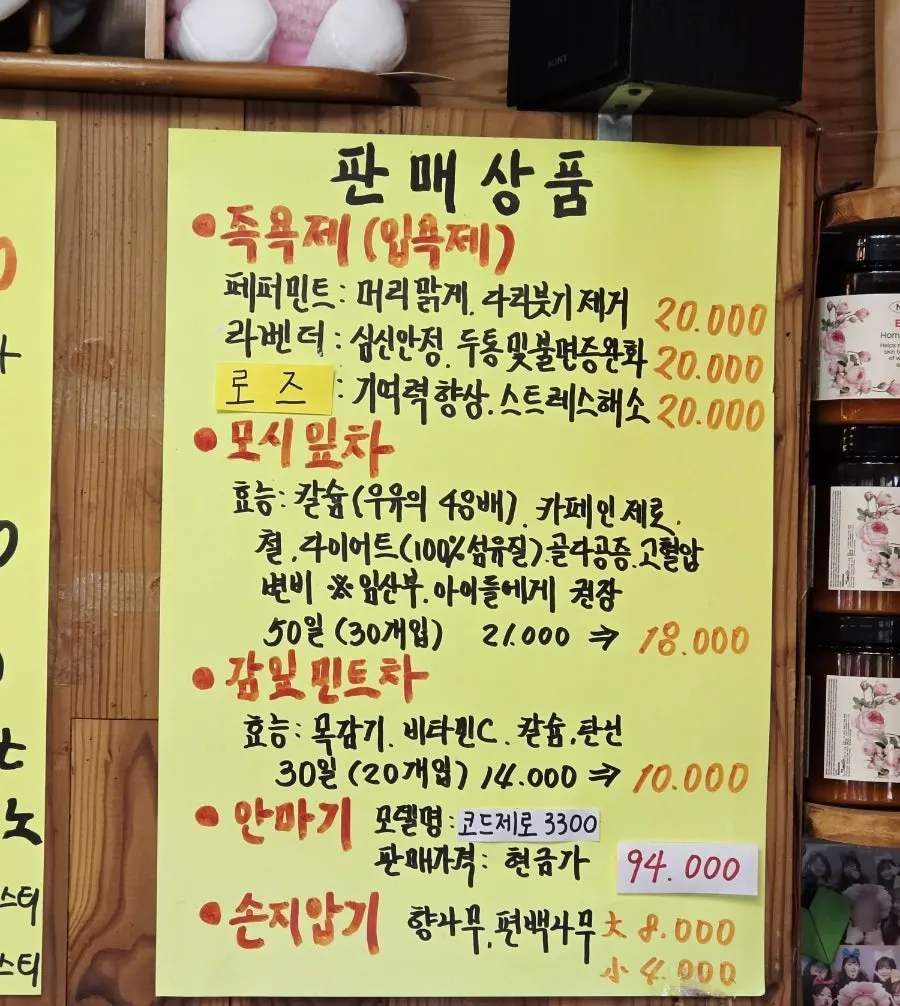 SONY
판매상품
• 족욕제 (입욕제)
페퍼민트 : 머리맑게. 다리붓기제거 20.000
라벤더 : 심신안정. 두통및불면증완화 20.000
로즈 : 기억력향상. 스트레스해소 20.000
• 모시잎차
효능: 칼슘(우유의 48배). 카페인제로.
철. 다이어트(100%섬유질).골다공증.고혈압
변비 ※임산부.아이들에게 권장
50일 (30개입) 21.000 ⇒ 18.000
• 감잎민트차
효능: 목감기. 비타민C. 칼슘.탄닌
30일 (20개입) 14.000 ⇒ 10.000
• 안마기 모델명 : 코드제로 3300
판매가격 : 현금가 94.000
• 손지압기 향나무.편백나무 大 8.000
小 4.000
노
스티
스티